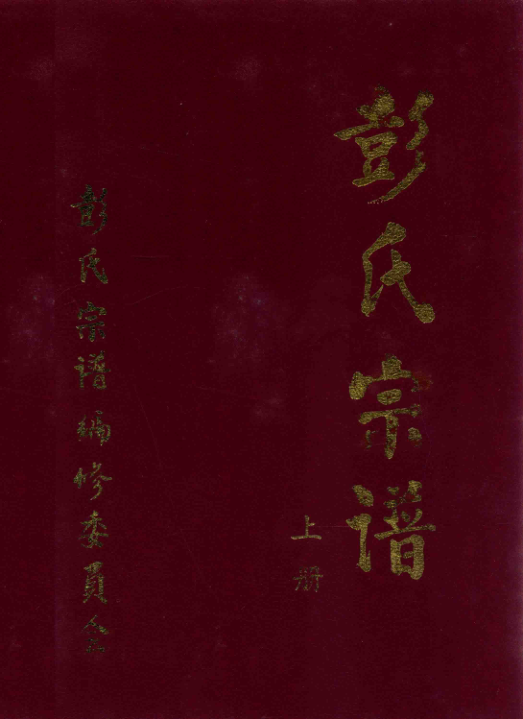 彭氏宗谱
上册
彭氏宗谱编修委員会